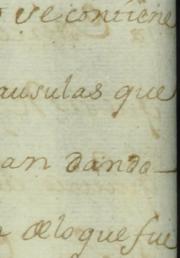 se contiene
ausulas que
an dando
de lo que fue